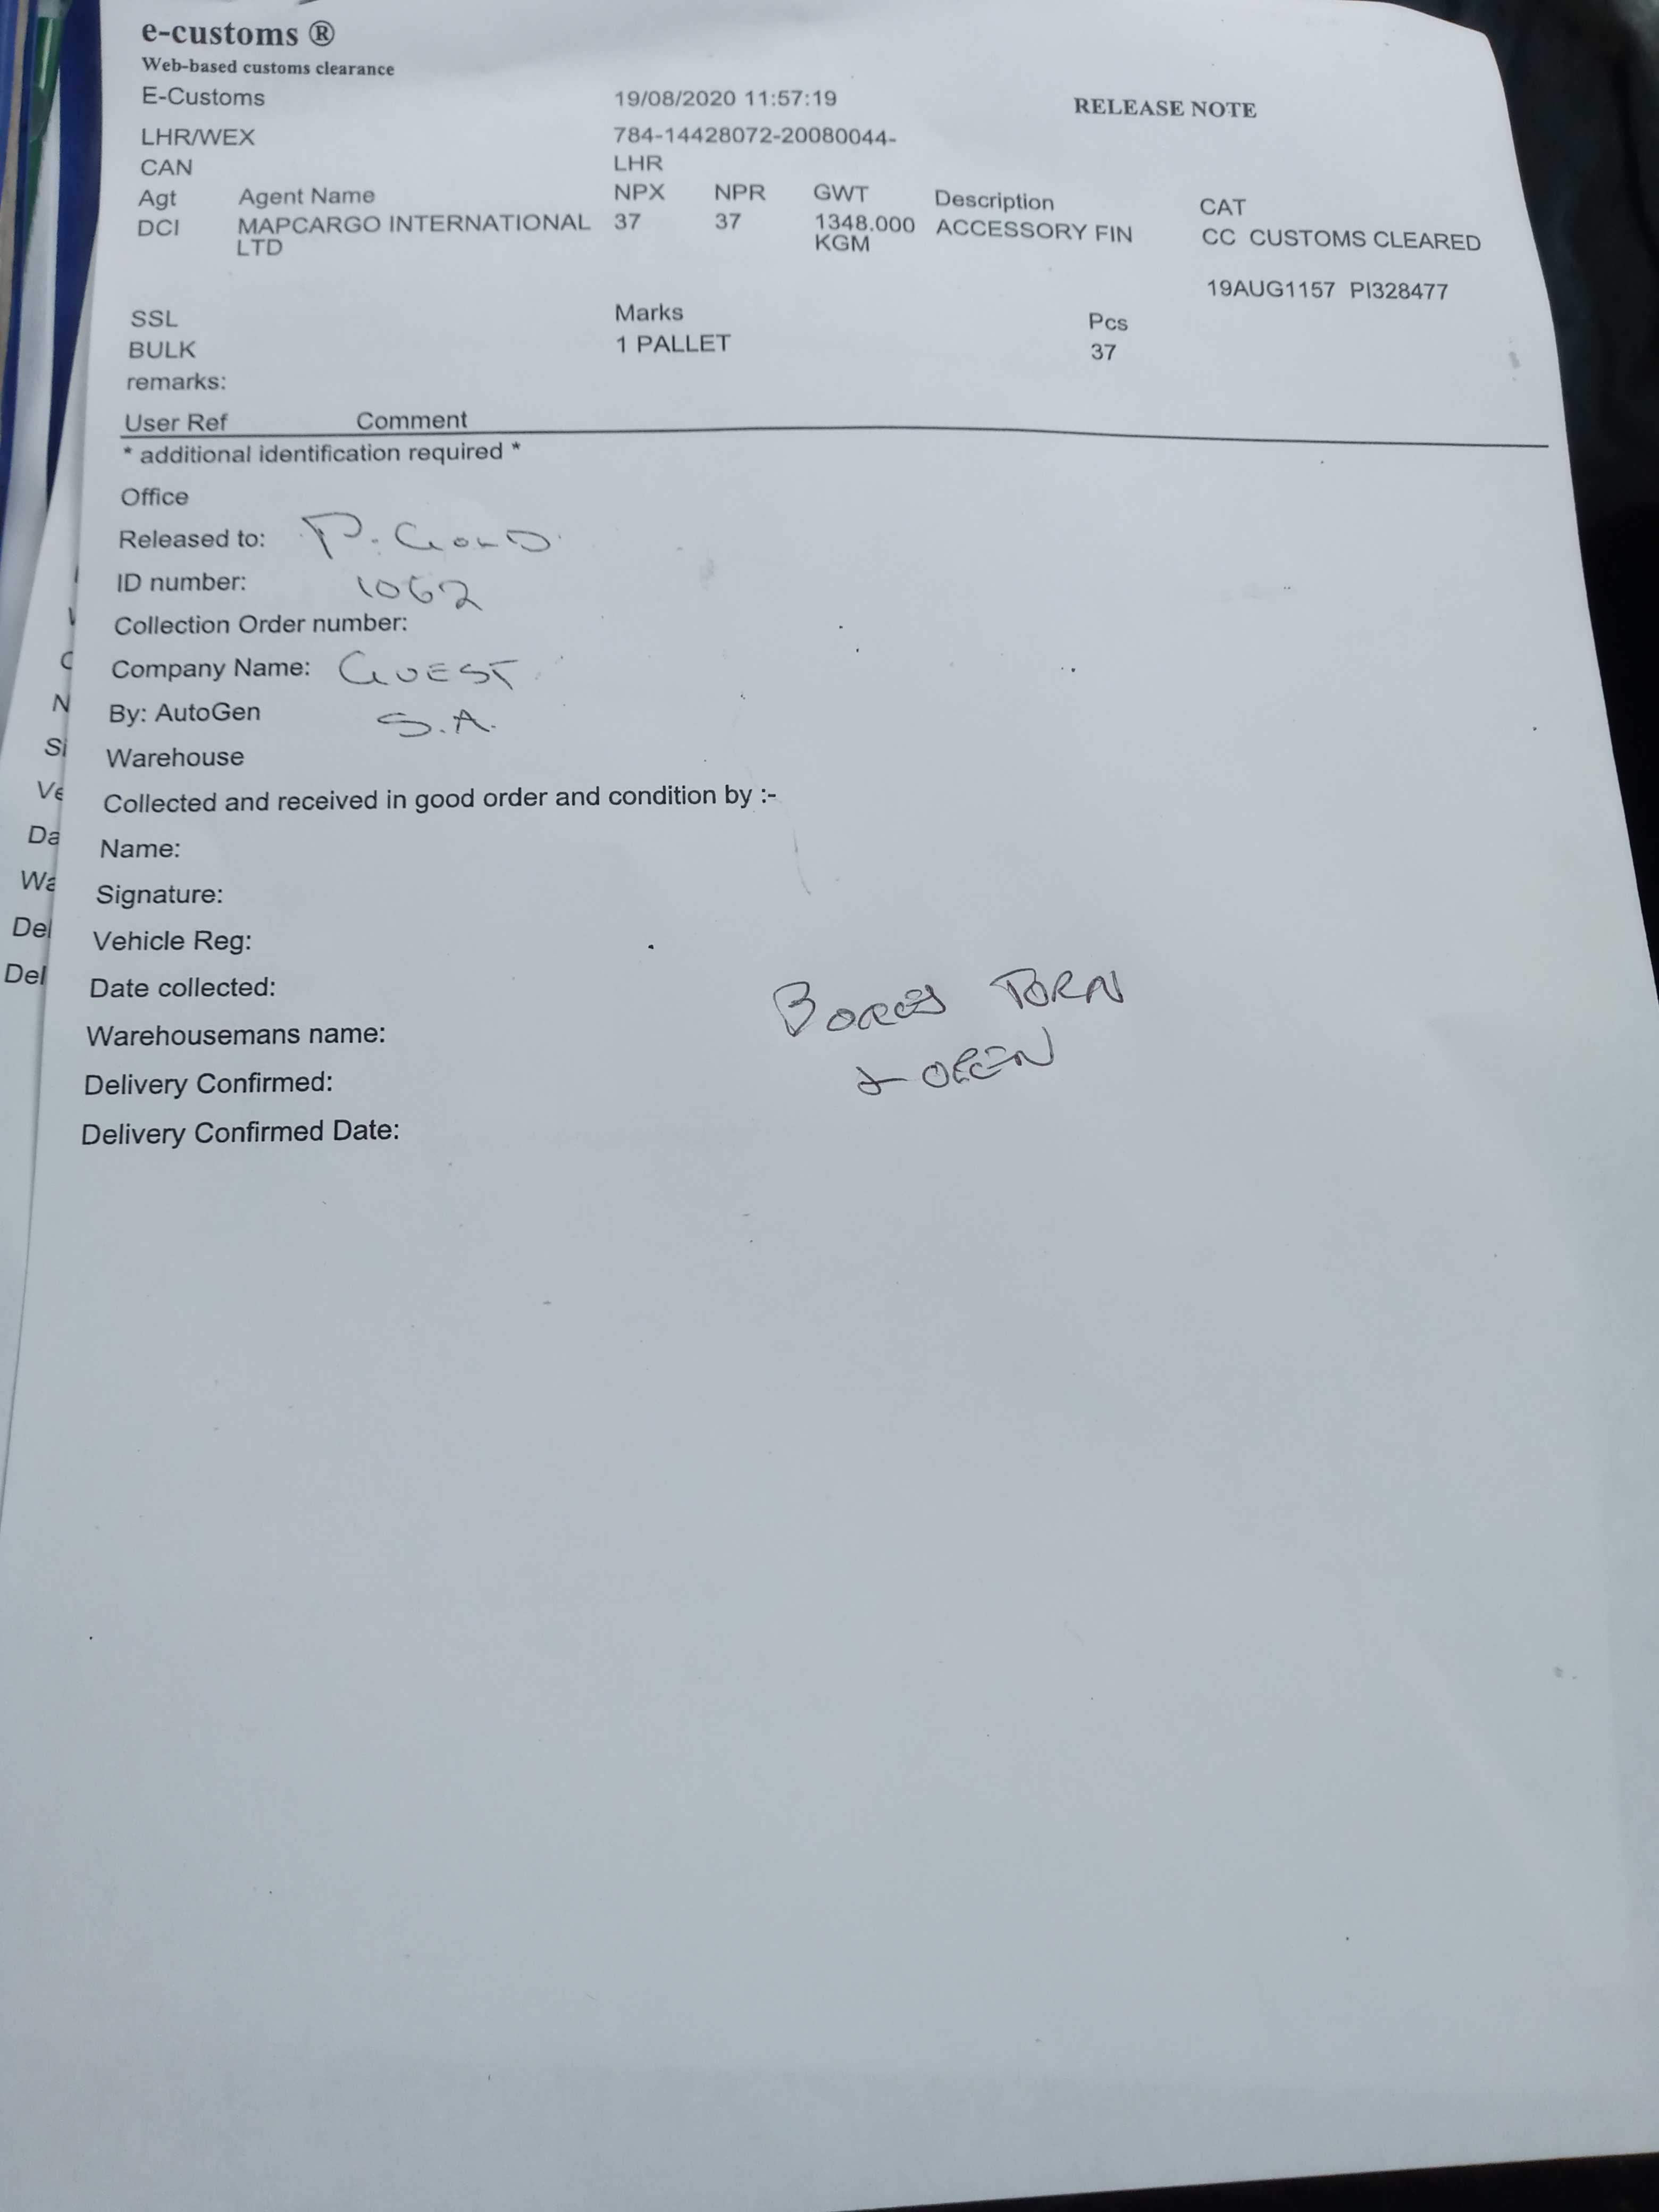 e-customs ®
Web-based customs clearance
E-Customs 19/08/2020 11:57:19 RELEASE NOTE
LHR/WEX 784-14428072-20080044-
CAN LHR
Agt Agent Name NPX NPR GWT Description CAT
DCI MAPCARGO INTERNATIONAL 37 37 1348.000 ACCESSORY FIN CC CUSTOMS CLEARED
LTD KGM
19AUG1157 PI328477
SSL Marks Pcs
BULK 1 PALLET 37
remarks:
User Ref Comment
* additional identification required *
Office
Released to: P. GOLD
ID number: 1062
Collection Order number:
Company Name: GUEST
By: AutoGen S.A.
Warehouse
Collected and received in good order and condition by :-
Name:
Signature:
Vehicle Reg:
Date collected:
TORN
Warehousemans name:
& OPEN
Delivery Confirmed:
Delivery Confirmed Date:
N
Si
Ve
Da
Wa
Del
Del